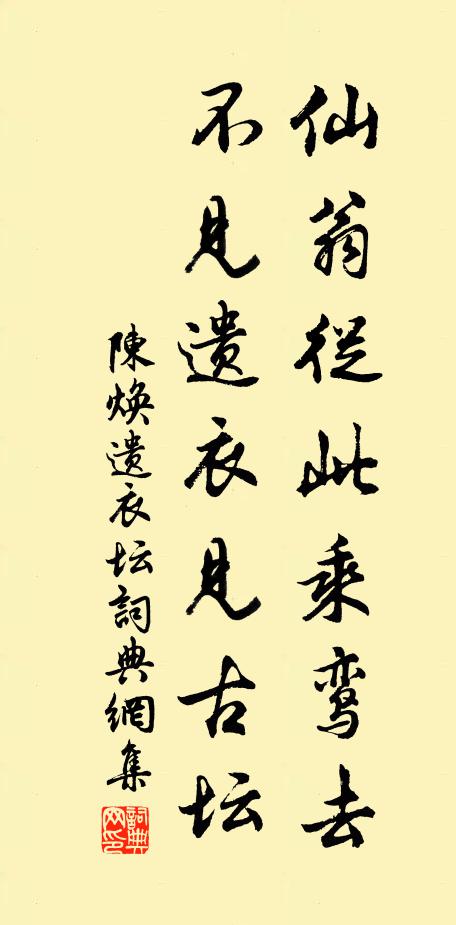 仙翁從此乘鸾去
不見遗衣見古坛
陳焕遗衣坛詞典網集
詞典網印